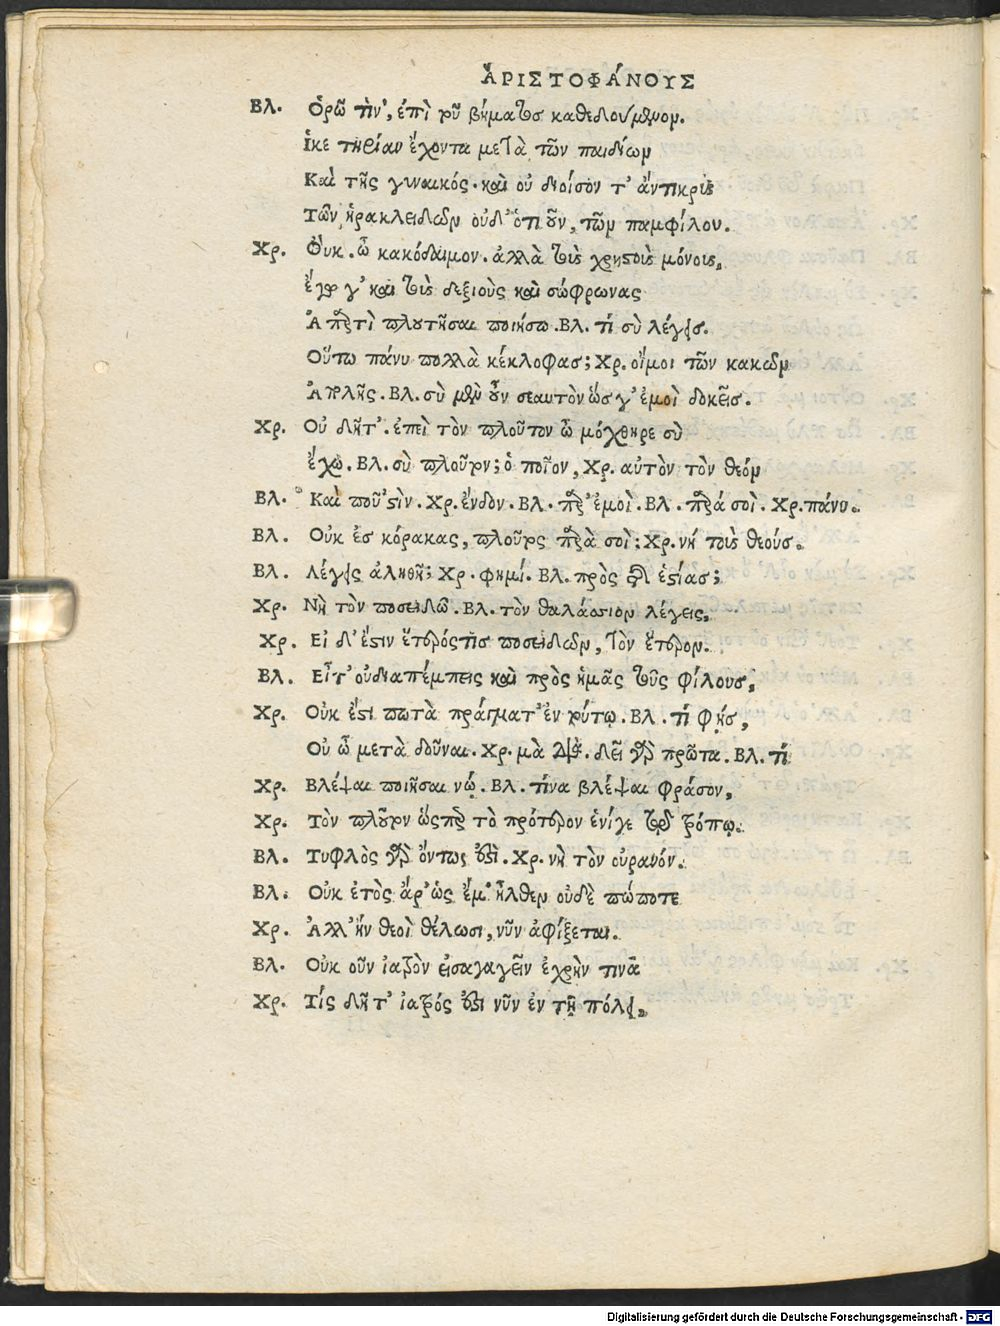 ἈΡΙΣΤΟΦΆΝΟΥΣ
Βλ. Ὁρῶ τὶν', ἐπὶ τοῦ βήματος καθεδούμενον.
Ἱκετηρίαν ἔχοντα μετὰ τῶν παιδίων
Καὶ τῆς γυναικός. καὶ οὐ διοίσον τ' ἄντικρυς
Τῶν ἡρακλειδῶν οὐδ' ὁτιοῦν, τῶν παμφίλου.
Χρ. Οὐκ. ὦ κακόδαιμον. ἀλλὰ τοὺς χρηστοὺς μόνους,
ἔγωγ' καὶ τοὺς δεξιοὺς καὶ σώφρονας
Ἀπαρτὶ πλουτῆσαι ποιήσω. Βλ. τί σὺ λέγεις.
Οὕτω πάνυ πολλὰ κέκλοφας; Χρ. οἴμοι τῶν κακῶν
Ἀπολῆς. Βλ. σὺ μὲν οὖν σεαυτὸν ὥσγ' ἐμοὶ δοκεῖς.
Χρ. Οὐ δῆτ'. ἐπεὶ τὸν πλοῦτον ὦ μόχθηρε σὺ
ἔχω. Βλ. σὺ πλοῦτον; ὁ ποῖον, Χρ. αὐτὸν τὸν θεόν
Βλ. Καὶ ποῦ 'στὶν. Χρ. ἔνδον. Βλ. παρ' ἐμοὶ. Βλ. παρά σοὶ. Χρ. πάνυ.
Βλ. Οὐκ ἐσ κόρακας, πλοῦτος παρὰ σοὶ; Χρ. νή τοὺς θεούσ.
Βλ. Λέγεις ἀληθῆ; Χρ. φημί. Βλ. πρὸς τῆς ἑστίας;
Χρ. Νὴ τὸν ποσειδῶ. Βλ. τὸν θαλάσσιον λέγεις,
Χρ. Εἰ δ' ἔστιν ἕτερός τις ποσειδῶν, τὸν ἕτερον.
Βλ. Εἶτ' οὐ διαπέμπεις καὶ πρὸς ἡμᾶς τοὺς φίλους,
Χρ. Οὐκ ἔστι πωτὰ πράγματ' ἐν τούτῳ. Βλ. τί φῄς,
Οὐ ὦ μετὰ δοῦναι. Χρ. μὰ Δία. δεῖ γὰρ πρῶτα. Βλ. τί
Χρ. Βλέψαι ποιῆσαι νῴ. Βλ. τίνα βλέψαι φράσον,
Χρ. Τὸν πλοῦτον ὥσπερ τὸ πρότερον ἑνίγε τῷ τρόπῳ.
Βλ. Τυφλὸς γὰρ ὄντως ἐστὶ. Χρ. νὴ τὸν οὐρανόν.
Βλ. Οὐκ ἐτὸς ἄρ' ὡς ἔμ' ἦλθεν οὐδὲ πώποτε
Χρ. Ἀλλ' ἢν θεοὶ θέλωσι, νῦν ἀφίξεται.
Βλ. Οὐκ οῦν ἰατρὸν εἰσαγαγεῖν ἐχρῆν τινὰ
Χρ. Τίς δῆτ' ἰατρός ἐστι νῦν ἐν τῇ πόλει,
Digitalisierung gefördert durch die Deutsche Forschungsgemeinschaft - DFG